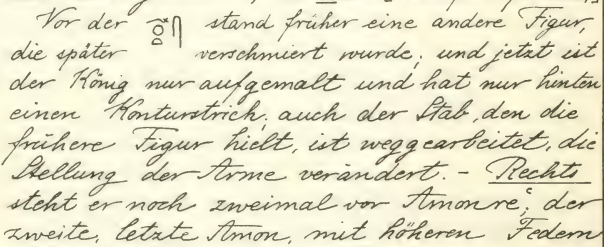 Vor der stand früher eine andere Figur,
die später verschmiert wurde; und jetzt ist
der König nur aufgemalt und hat nur hinten
einen Konturstrich; auch der Stab, den die
frühere Figur hielt, ist weggearbeitet, die
Stellung der Arme verändert. – Rechts
steht er noch zweimal vor Amonre; der
zweite, letzte Amon, mit höheren Federn